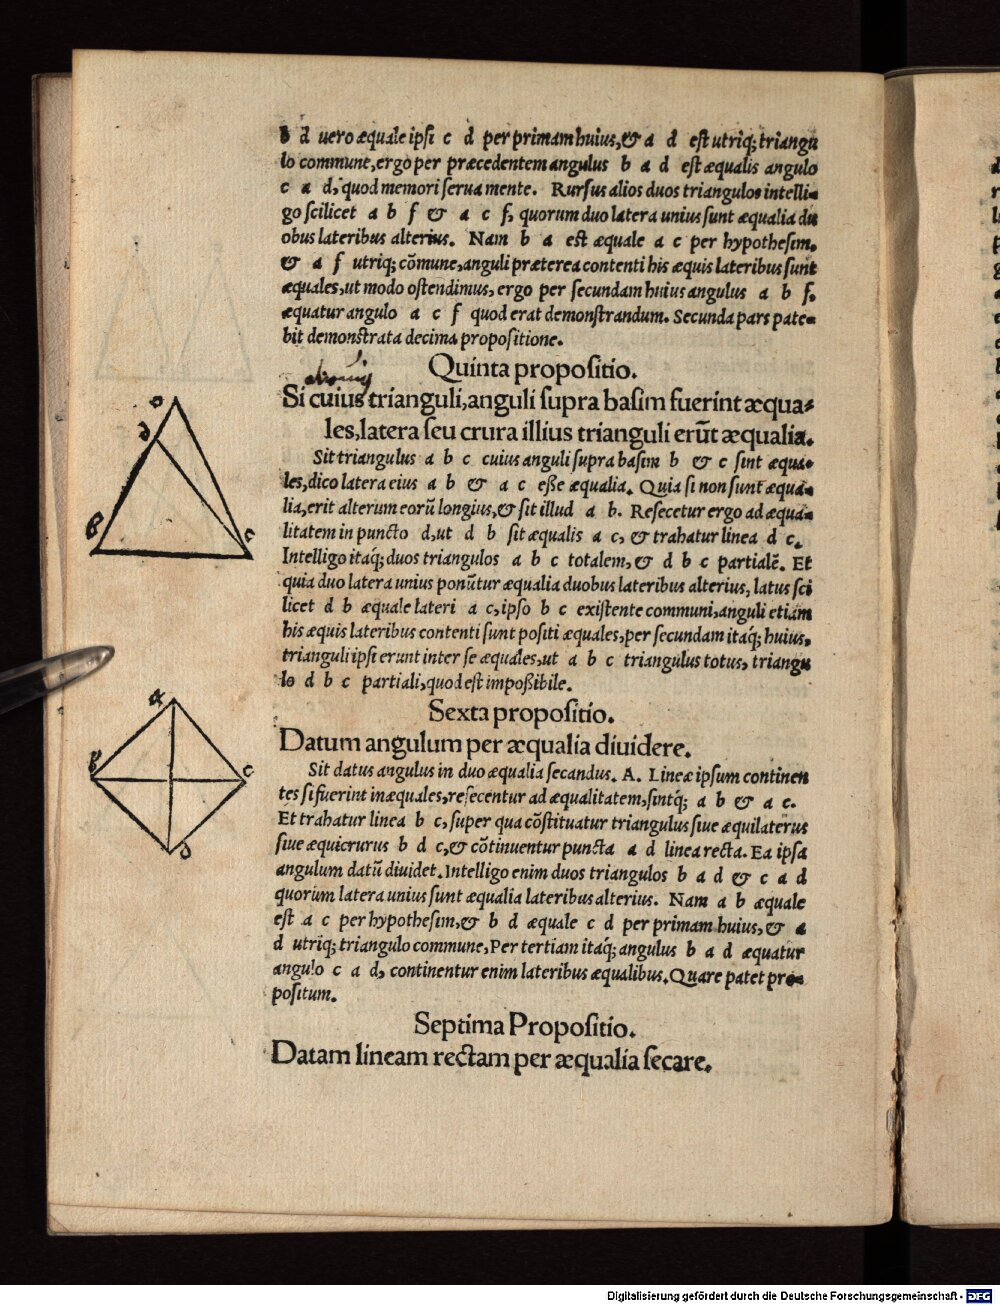 b d uero æquale ipsi c d per primam huius, & a d est utriq; triangu
lo commune, ergo per præcedentem angulus b a d est æqualis angulo
c a d, quod memori serua mente. Rursus alios duos triangulos intelli-
go scilicet a b f & a c f, quorum duo latera unius sunt æqualia du
obus lateribus alterius. Nam b a est æquale a c per hypothesim,
& a f utriq; cõmune, anguli præterea contenti his æquis lateribus sunt
æquales, ut modo ostendimus, ergo per secundam huius angulus a b f,
æquatur angulo a c f quod erat demonstrandum. Secunda pars pate-
bit demonstrata decima propositione.
Quinta propositio.
Si cuius trianguli, anguli supra basim fuerint æqua-
les, latera seu crura illius trianguli erũt æqualia.
Sit triangulus a b c cuius anguli supra basim b & c sint æqua-
les, dico latera eius a b & a c esse æqualia. Quia si non sunt æqua-
lia, erit alterum eorũ longius, & sit illud a b. Resecetur ergo ad æqua-
litatem in puncto d, ut d b sit æqualis a c, & trahatur linea d c.
Intelligo itaq; duos triangulos a b c totalem, & d b c partialẽ. Et
quia duo latera unius ponũtur æqualia duobus lateribus alterius, latus sci
licet d b æquale lateri a c, ipso b c existente communi, anguli etiam
his æquis lateribus contenti sunt positi æquales, per secundam itaq; huius,
trianguli ipsi erunt inter se æquales, ut a b c triangulus totus, triangu
lo d b c partiali, quod est impoßibile.
Sexta propositio.
Datum angulum per æqualia diuidere.
Sit datus angulus in duo æqualia secandus. A. Lineæ ipsum continen
tes si fuerint inæquales, resecentur ad æqualitatem, sintq; a b & a c.
Et trahatur linea b c, super qua cõstituatur triangulus siue æquilaterus
siue æquicrurus b d c, & cõtinuentur puncta a d linea recta. Ea ipsa
angulum datũ diuidet. Intelligo enim duos triangulos b a d & c a d
quorum latera unius sunt æqualia lateribus alterius. Nam a b æquale
est a c per hypothesim, & b d æquale c d per primam huius, & a
d utriq; triangulo commune, Per tertiam itaq; angulus b a d æquatur
angulo c a d, continentur enim lateribus æqualibus. Quare patet pro-
positum.
Septima Propositio.
Datam lineam rectam per æqualia secare.
a
d
B
c
a
b
c
d
Digitalisierung gefördert durch die Deutsche Forschungsgemeinschaft - DFG